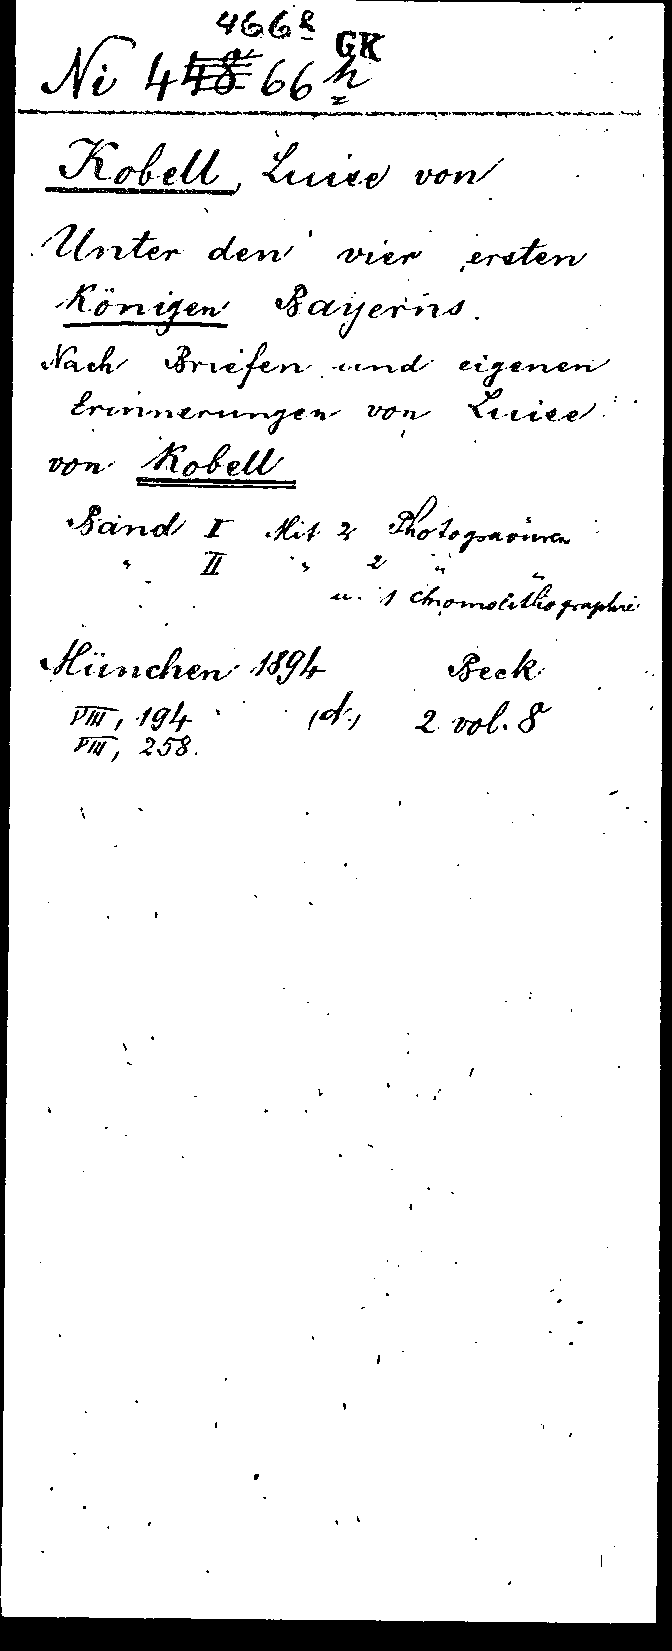 466
GK
Ni 4 66 h
Kobell, Luise von
Unter den vier ersten
Königen Bayerns.
Nach Briefen und eigenen
Erinnerungen von Luise
von Kobell
Band I Mit 2 Photogravüren
" II " 2 "
u. 1 Chromolithographie
München 1894 Beck
VIII, 194 (d.) 2 vol. 8
VIII, 258.